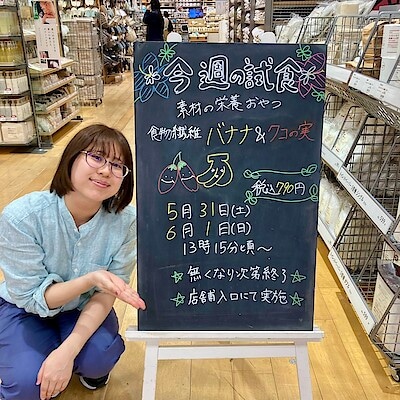 今週の試食
素材の栄養おやつ
食物繊維 バナナ&クコの実
税込790円
5月31日(土)
6月1日(日)
13時15分頃〜
☆無くなり次第終了☆
☆店舗入口にて実施☆